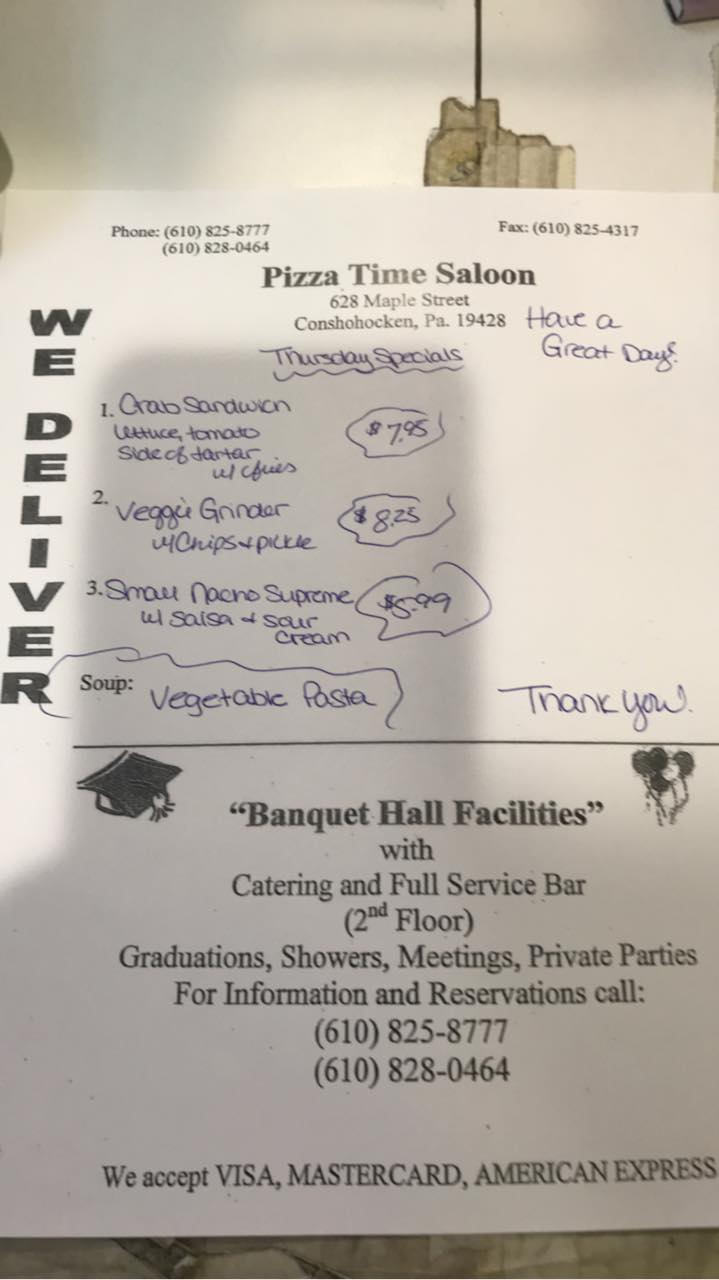 Phone: (610) 825-8777
(610) 828-0464
Fax: (610) 825-4317
Pizza Time Saloon
628 Maple Street
Conshohocken, Pa. 19428
Have a
Great Day!
WE DELIVER
Thursday Specials
1. Crab Sandwich
lettuce, tomato
Side of tartar
w/ cfries
$7.95
2. Veggie Grinder
w/ Chips & pickle
$8.25
3. Small Nacho Supreme
w/ Salsa & sour
cream
$5.99
Soup: Vegetable Pasta
Thank you!
“Banquet Hall Facilities”
with
Catering and Full Service Bar
(2nd Floor)
Graduations, Showers, Meetings, Private Parties
For Information and Reservations call:
(610) 825-8777
(610) 828-0464
We accept VISA, MASTERCARD, AMERICAN EXPRESS